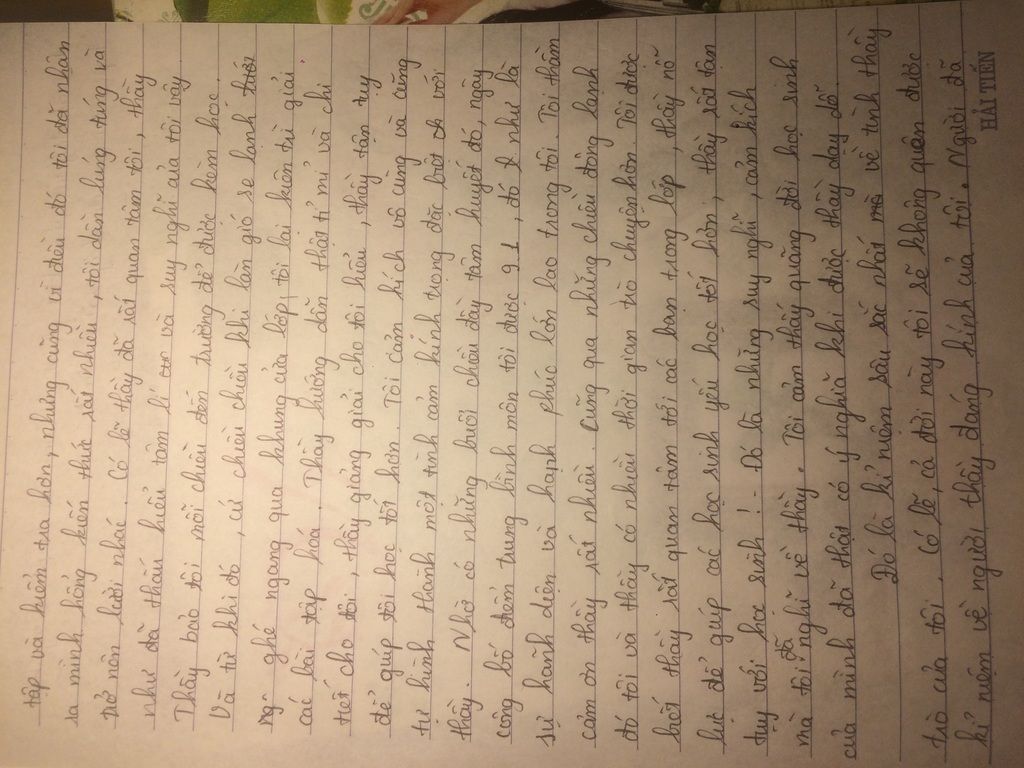 tập và kiểm tra hơn, nhưng cũng vì điều đó tôi đã nhận
ra mình hổng kiến thức rất nhiều, tôi dần lúng túng và
trở nên lười nhác. Có lẽ thầy đã rất quan tâm tôi, thầy
như đã thấu hiểu tâm lí và suy nghĩ của tôi vậy
Thầy bảo tôi mỗi chiều đến trường để được kèm học.
Và từ khi đó, cứ chiều chiều khi làn gió se lạnh
ghé ngang qua khung cửa lớp, tôi lại kiên trì giải
các bài tập hoá. Thầy hướng dẫn thật tỉ mỉ và chi
tiết cho tôi, thầy giảng giải cho tôi hiểu, thầy tận tụy
để giúp tôi học tốt hơn. Tôi cảm kích vô cùng và cũng
tự hình thành một tình cảm kính trọng đặc biệt với
thầy. Nhờ có những buổi chiều đầy tâm huyết đó, ngày
công bố điểm trung bình môn tôi được 9,1, đó như là
sự hãnh diện và hạnh phúc lớn lao trong tôi. Tôi thầm
cảm ơn thầy rất nhiều. Cũng qua những chiều đông lạnh
đó tôi và thầy có nhiều thời gian trò chuyện hơn. Tôi được
biết thầy rất quan tâm tới các bạn trong lớp, thầy nỗ
lực để giúp các học sinh yếu học tốt hơn, thầy rất tận
tụy với học sinh! Đó là những suy nghĩ, cảm kích
mà tôi đã nghĩ về thầy. Tôi cảm thấy quãng đời học sinh
của mình đã thật có ý nghĩa khi được thầy dạy dỗ.
Đó là kỉ niệm sâu sắc nhất về tình thầy
trò của tôi. Có lẽ, cả đời này tôi sẽ không quên được
kỉ niệm về người thầy đáng kính của tôi. Người đã
HẢI TIẾN